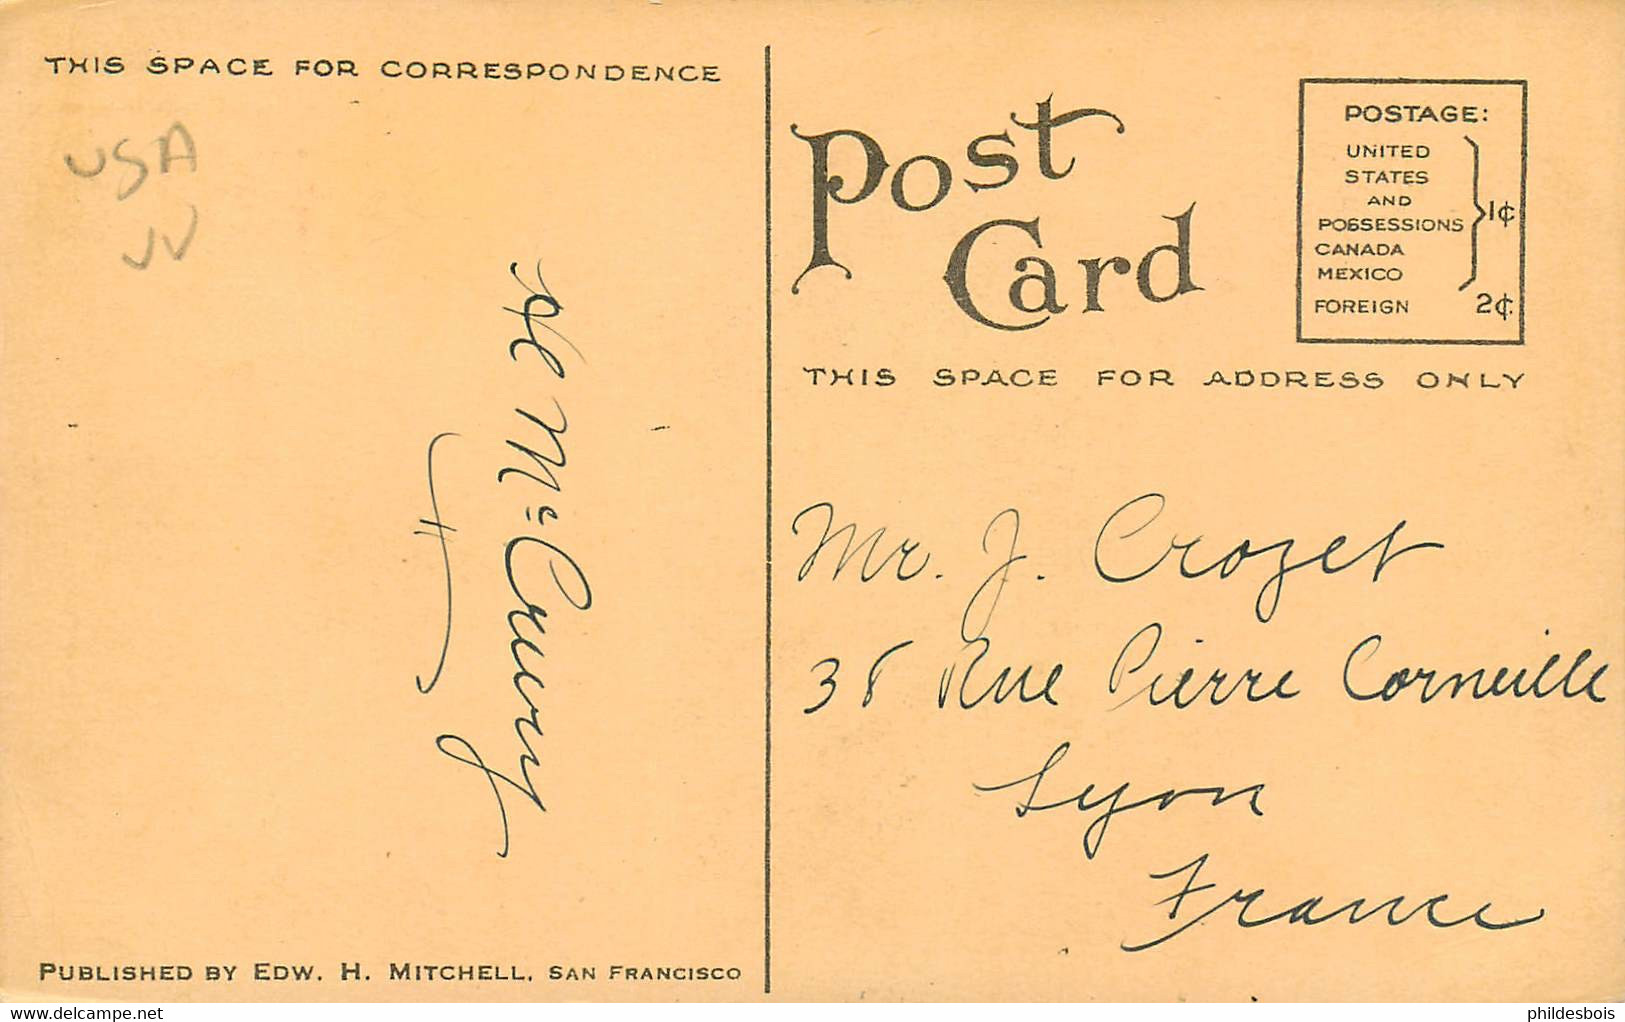 THIS SPACE FOR CORRESPONDENCE
USA
VV
McCreery
PUBLISHED BY EDW. H. MITCHELL, SAN FRANCISCO
Post
Card
POSTAGE:
UNITED
STATES
AND
POSSESSIONS
CANADA
MEXICO
1¢
FOREIGN 2¢.
THIS SPACE FOR ADDRESS ONLY
Mr. J. Crozet
38 Rue Pierre Corneille
Lyon
France
www.delcampe.net
phildesbois